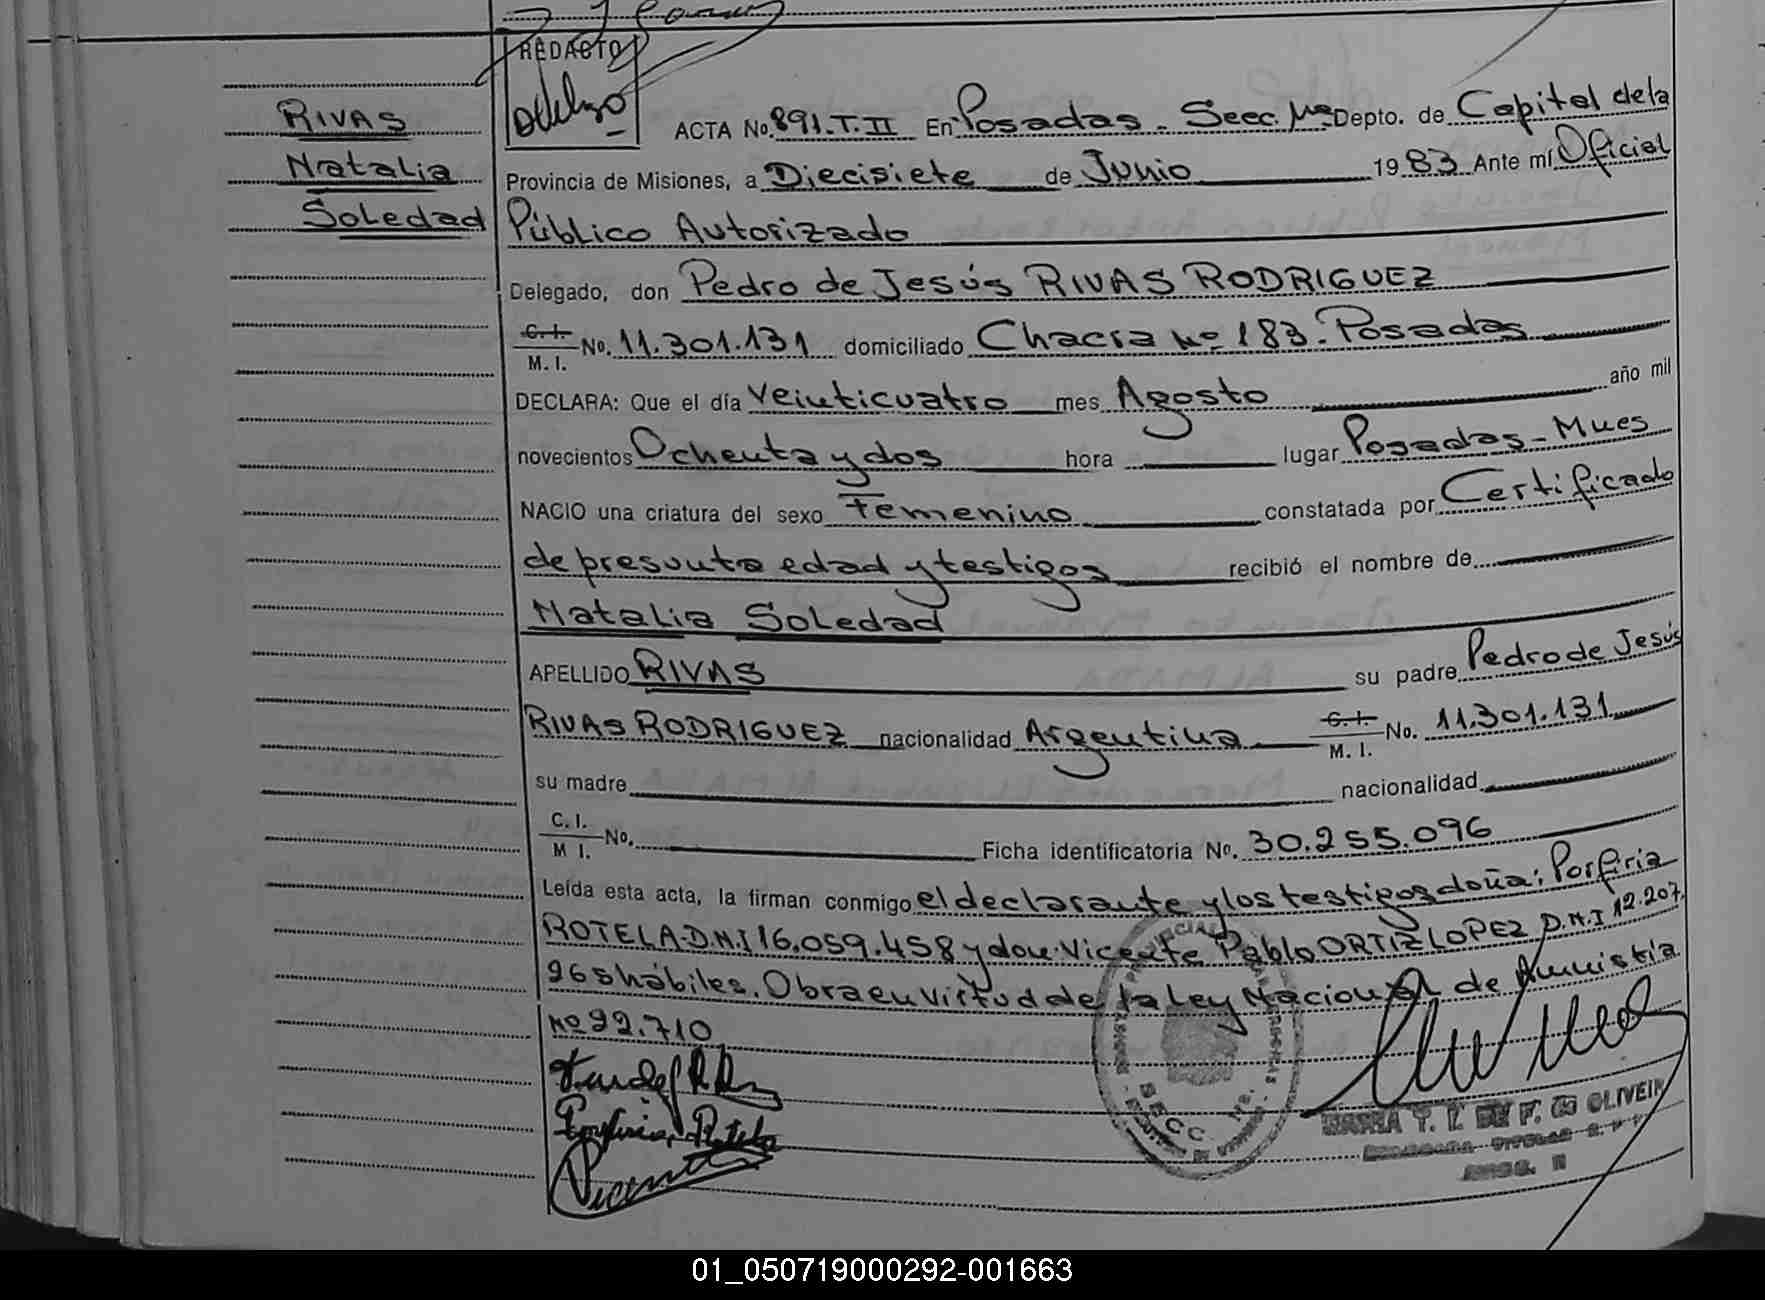 REDACTO
RIVAS
Natalia
Soledad
ACTA No. 891.T.II En Posadas. Secc. Mes Depto. de Capital de la
Provincia de Misiones, a Diecisiete de Junio 1983 Ante mí Oficial
Público Autorizado
Delegado, don Pedro de Jesús RIVAS RODRIGUEZ
C.I.
M.I. No. 11.301.131 domiciliado Chacra Nº 183. Posadas
DECLARA: Que el día Veinticuatro mes Agosto año mil
novecientos Ochenta y dos hora lugar Posadas - Mnes
NACIO una criatura del sexo Femenino constatada por Certificado
de presunta edad y testigos recibió el nombre de
Natalia Soledad
APELLIDO RIVAS su padre Pedro de Jesús
RIVAS RODRIGUEZ nacionalidad Argentina C.I. M.I. No. 11.301.131
su madre nacionalidad
C.I.
M I. No. Ficha identificatoria No. 30.255.096
Leída esta acta, la firman conmigo el declarante y los testigos doña: Porfiria
ROTELA D.N.I 16.059.458 y don: Vicente Pablo ORTIZ LOPEZ D.N.I 12.207.
965 hábiles. Obra en virtud de la Ley Nacional de Amnistía
Nº 22.710
Porfiria Rotela
Vicente
SECC.
01_050719000292-001663